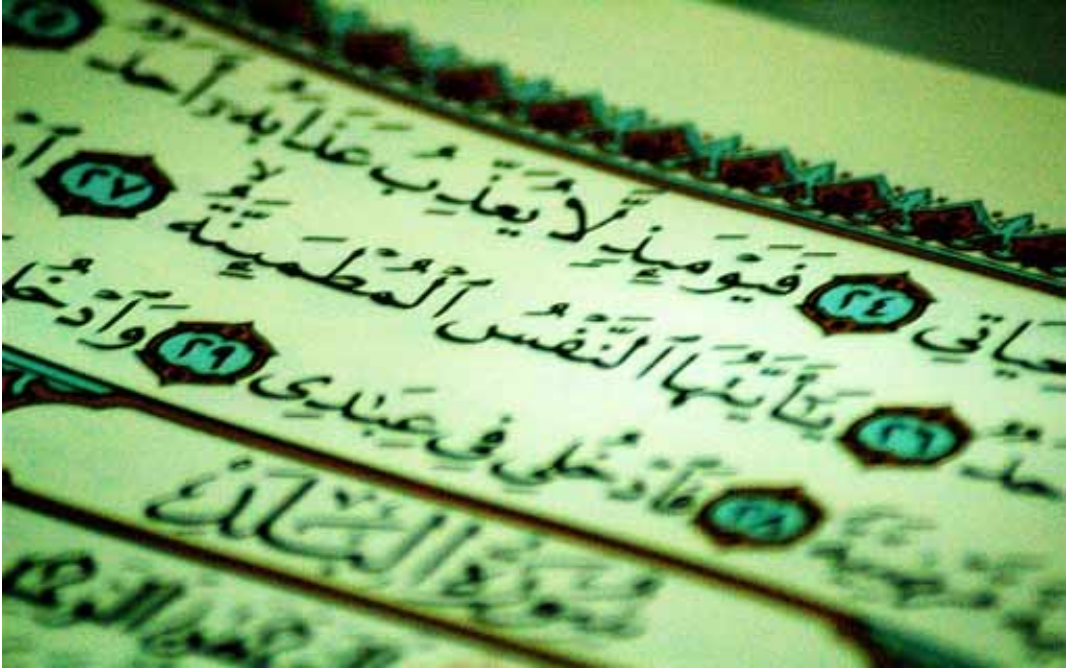 لِحَيَاتِي ٢٤ فَيَوْمَئِذٍ لَّا يُعَذِّبُ عَذَابَهُۥٓ أَحَدٌ ٢٥
أَحَدٌ ٢٦ يَٰٓأَيَّتُهَا ٱلنَّفْسُ ٱلْمُطْمَئِنَّةُ ٢٧
مَّرْضِيَّةً ٢٨ فَٱدْخُلِى فِى عِبَٰدِى ٢٩ وَٱدْخُلِى
سُورَةُ الْبَلَدِ